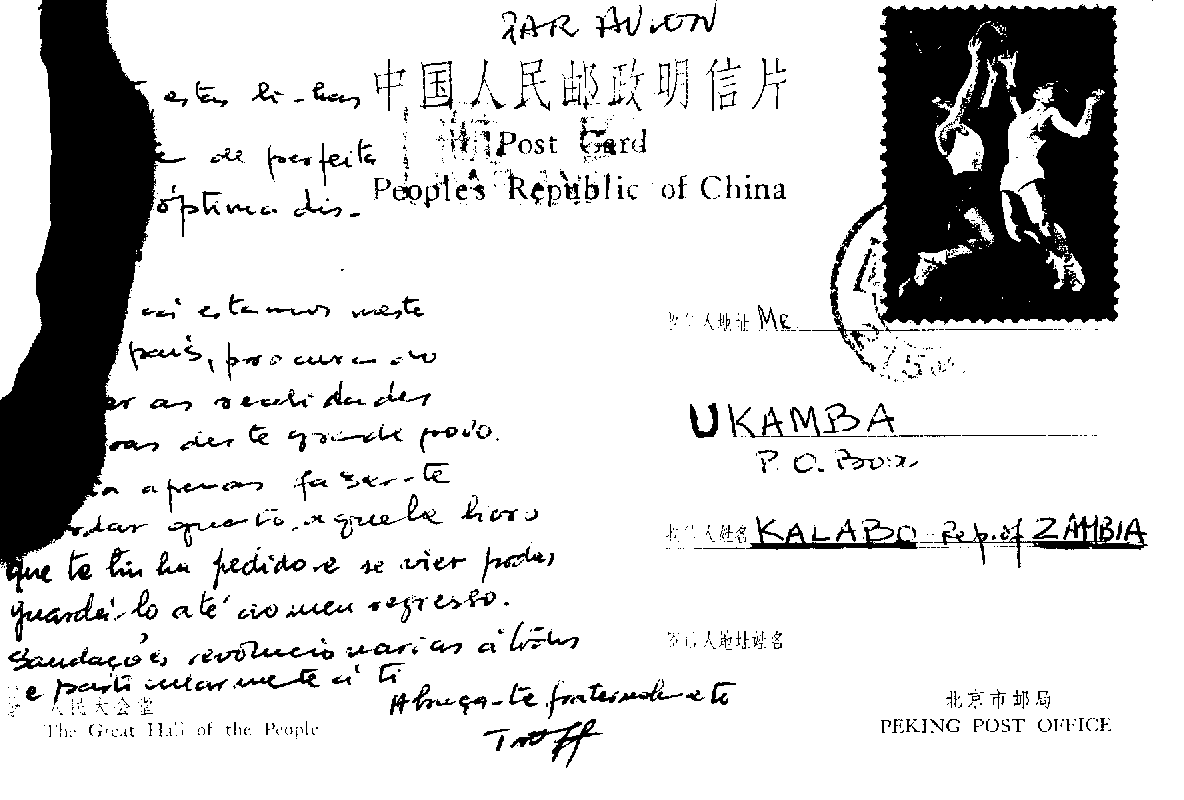 PAR AVION
中国人民邮政明信片
Post Card
People's Republic of China
estas linhas
de perfeita
óptima dis-
aí estamos neste
país, procurando
er as realidades
deste grande povo.
apenas fazer-te
quanto aquele livro
que te tinha pedido e se vier podes
guardá-lo até ao meu regresso.
Saudações revolucionarias á todos
e particularmente á ti
Abraça-te fraternalmente
收件人地址 Mr.
UKAMBA
P.O. Box
收件人姓名 KALABO Rep. of ZAMBIA
寄件人地址姓名
人民大会堂
The Great Hall of the People
北京市邮局
PEKING POST OFFICE